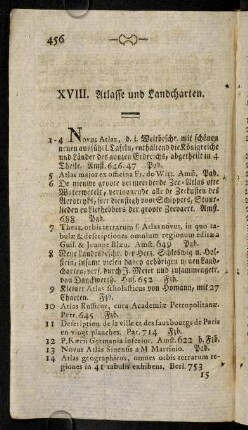 456
XVIII. Atlasse und Landcharten.
1-4 Novus Atlas, d. i. Weltbeschr. mit schönen
neuen ausführl. Tafeln, enthaltend die Königreiche
und Länder des gantzen Erdreichs, abgetheilt in 4
Theile. Amst. 646.47 Pgb.
5 Atlas major ex officina Fr. de Wit. Amst. Pgb.
6 De nieuwe groote vermeerderde Zee-Atlas ofte
Waterwerelt, vertoonende alle de Zeekusten des
Aerotryks, seer dienstigh voor Schippers, Stuur-
lieden en Liefhebbers der groote Zeevaert. Amst.
688 Pgb.
7 Theatr. orbis terrarum s. Atlas novus, in quo tabu-
læ & descriptiones omnium regionum editæ a
Guil. & Joanne Blæu. Amst. 649 Pgb.
8 Neue Landesbeschr. der Herz. Schleswig u. Hol-
stein, insamt vielen dabey gehörigen n. en Land-
charten, verf. durch J. Meier und zusammengetr.
von Danckwerth. Hus. 652 Fb.
9 Kleiner Atlas scholasticus von Homann, mit 27
Charten. Fb.
10 Atlas Russicus, cura Academiæ Petropolitanæ.
Petr. 645 Fb.
11 Description de la ville et des fauxbourgs de Paris
en vingt planches. Par. 714 Fb.
12 P. Kærii Germania inferior. Amst. 622 b. Fb.
13 Novus Atlas Sinensis a M Martinio. Pgb.
14 Atlas geographicus, omnes orbis terrarum re-
giones in 41 tabulis exhibens. Berl. 753
15